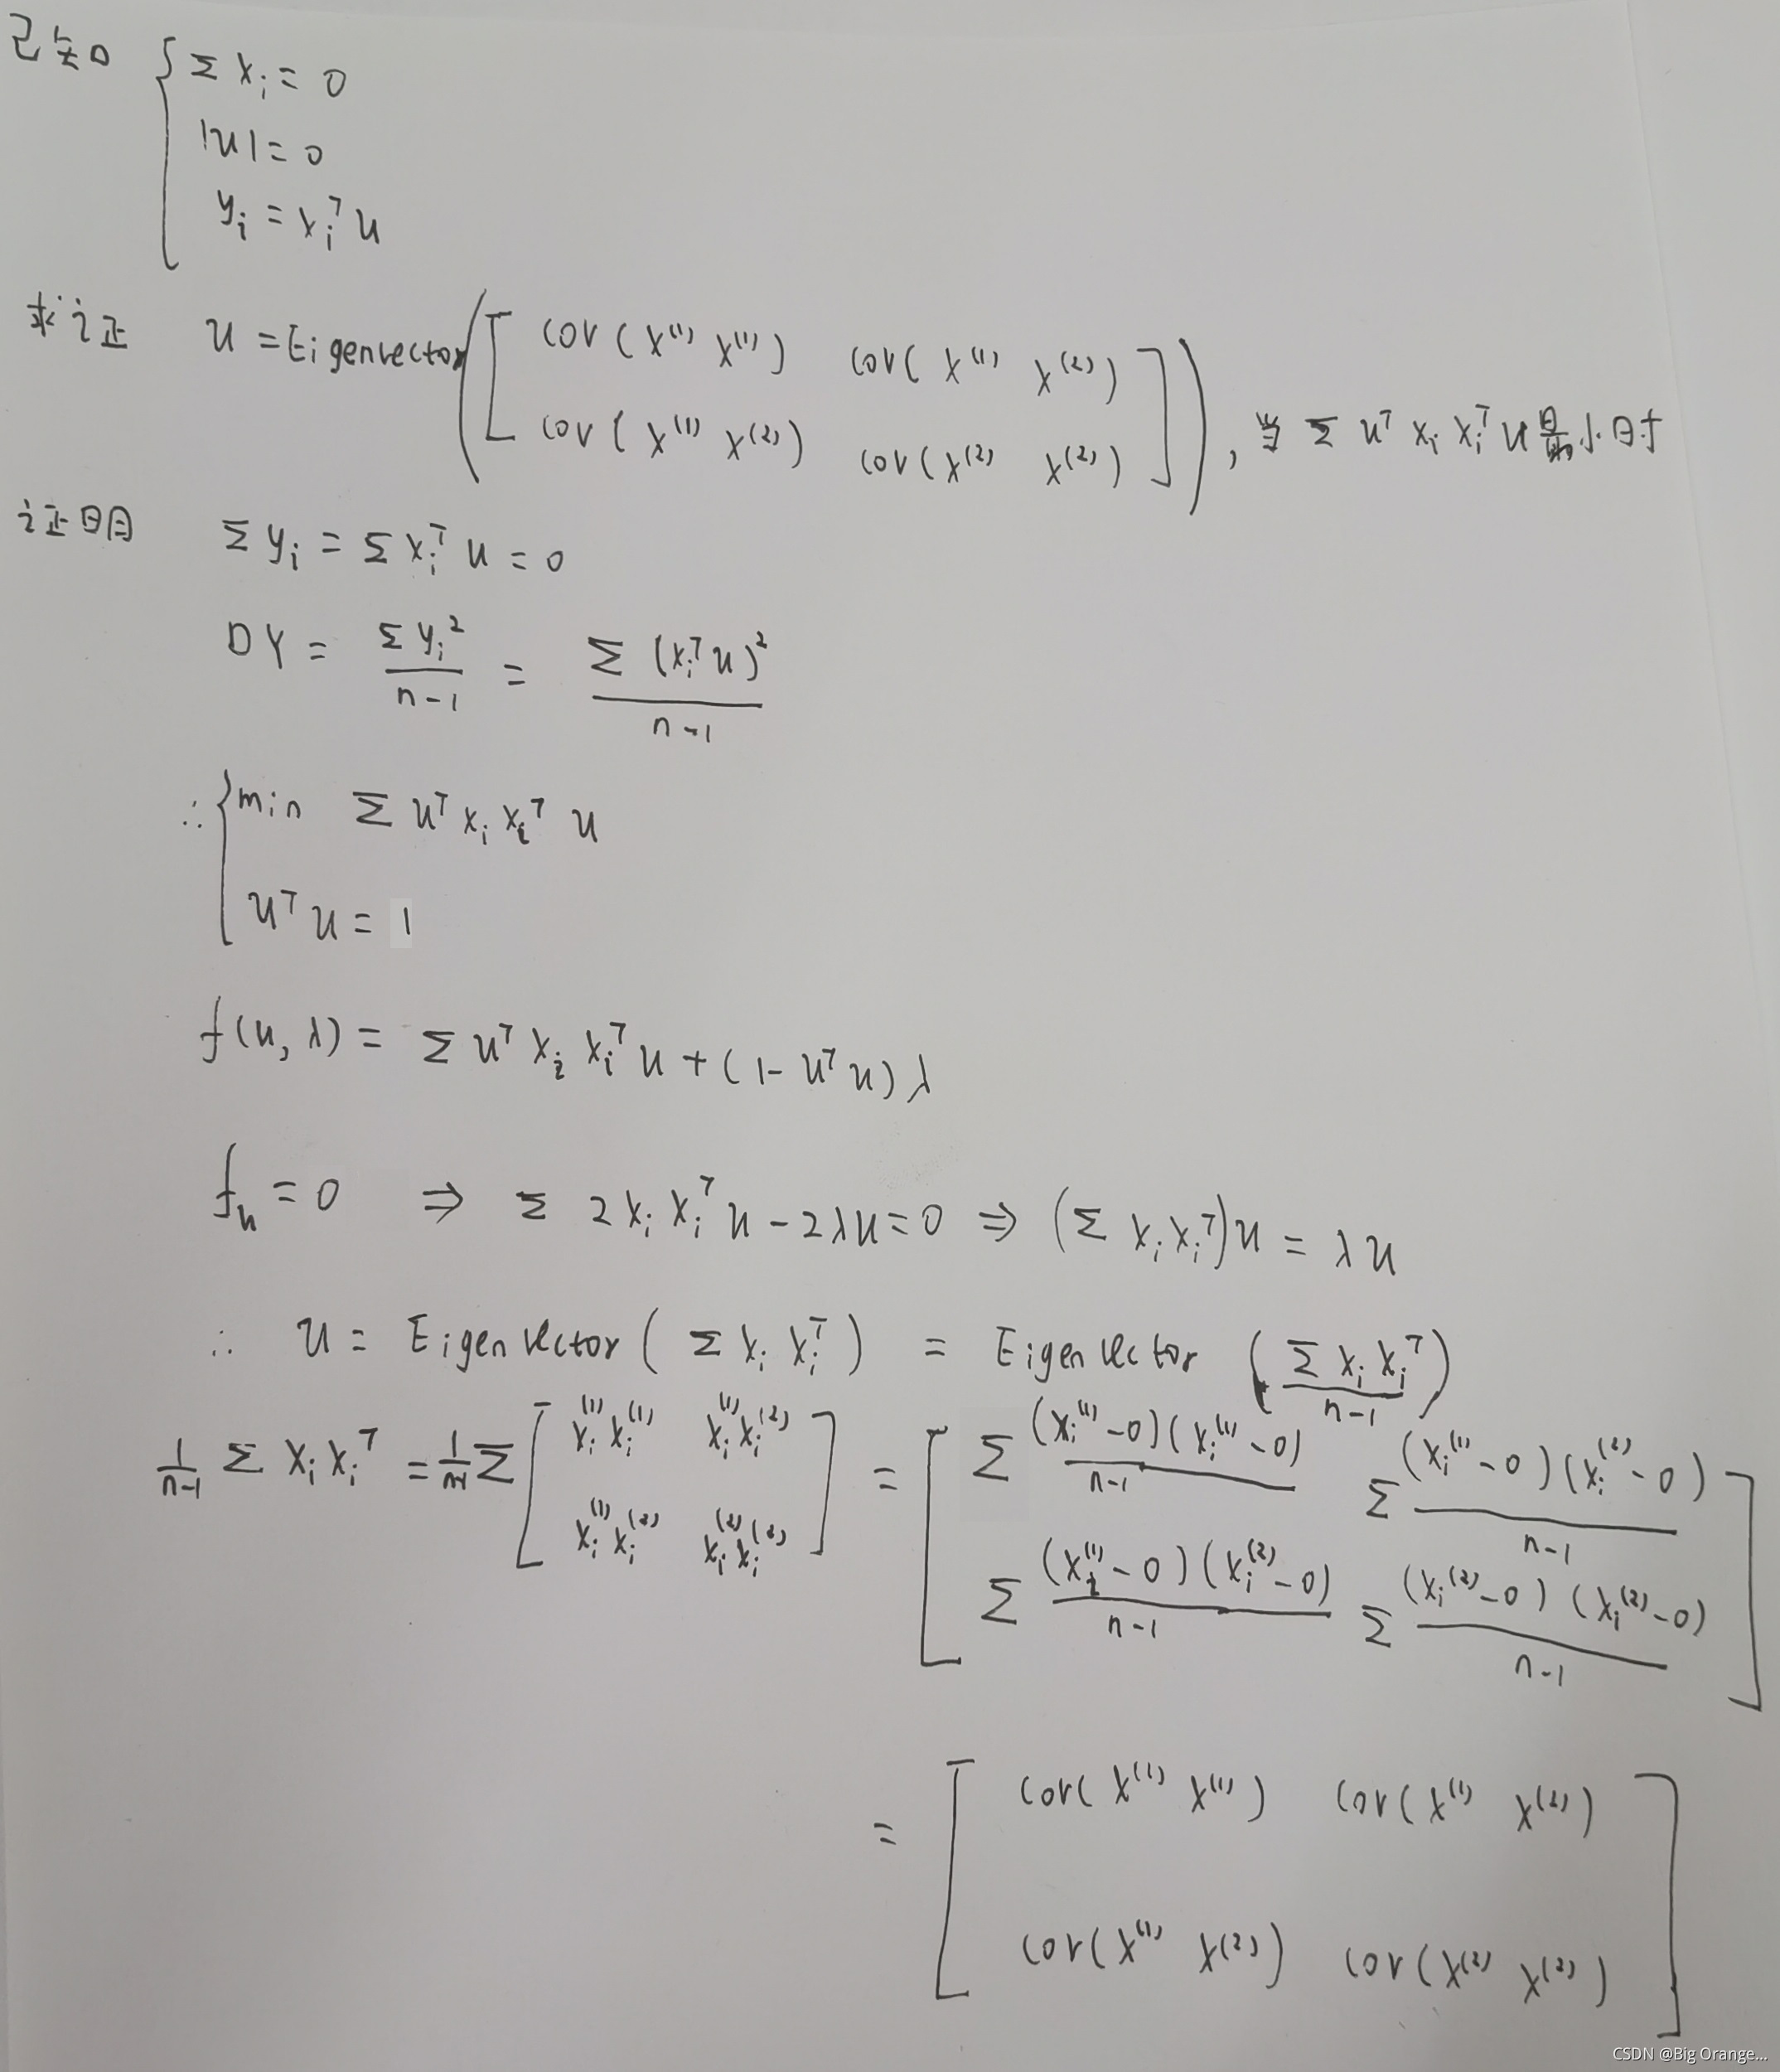 已知 { Σ xᵢ = 0
|u| = 0
yᵢ = xᵢᵀ u
求证 u = Eigenvector ( [ cov(x⁽¹⁾ x⁽¹⁾) cov(x⁽¹⁾ x⁽²⁾)
cov(x⁽¹⁾ x⁽²⁾) cov(x⁽²⁾ x⁽²⁾) ] ) , 当 Σ uᵀ xᵢ xᵢᵀ u 最小时
证明 Σ yᵢ = Σ xᵢᵀ u = 0
DY = Σ yᵢ² / (n-1) = Σ (xᵢᵀ u)² / (n-1)
∴ { min Σ uᵀ xᵢ xᵢᵀ u
uᵀ u = 1
f(u, λ) = Σ uᵀ xᵢ xᵢᵀ u + (1 - uᵀ u) λ
fᵤ = 0 ⇒ Σ 2xᵢ xᵢᵀ u - 2λu = 0 ⇒ (Σ xᵢ xᵢᵀ) u = λu
∴ u = Eigenvector ( Σ xᵢ xᵢᵀ ) = Eigenvector ( Σ xᵢ xᵢᵀ / (n-1) )
1/(n-1) Σ xᵢ xᵢᵀ = 1/(n-1) Σ [ xᵢ⁽¹⁾ xᵢ⁽¹⁾ xᵢ⁽¹⁾ xᵢ⁽²⁾ = [ Σ (xᵢ⁽¹⁾-0)(xᵢ⁽¹⁾-0) / (n-1) Σ (xᵢ⁽¹⁾-0)(xᵢ⁽²⁾-0) / (n-1)
xᵢ⁽¹⁾ xᵢ⁽²⁾ xᵢ⁽²⁾ xᵢ⁽²⁾ ] Σ (xᵢ⁽¹⁾-0)(xᵢ⁽²⁾-0) / (n-1) Σ (xᵢ⁽²⁾-0)(xᵢ⁽²⁾-0) / (n-1) ]
= [ cov(x⁽¹⁾ x⁽¹⁾) cov(x⁽¹⁾ x⁽²⁾)
cov(x⁽¹⁾ x⁽²⁾) cov(x⁽²⁾ x⁽²⁾) ]
CSDN @Big Orange...